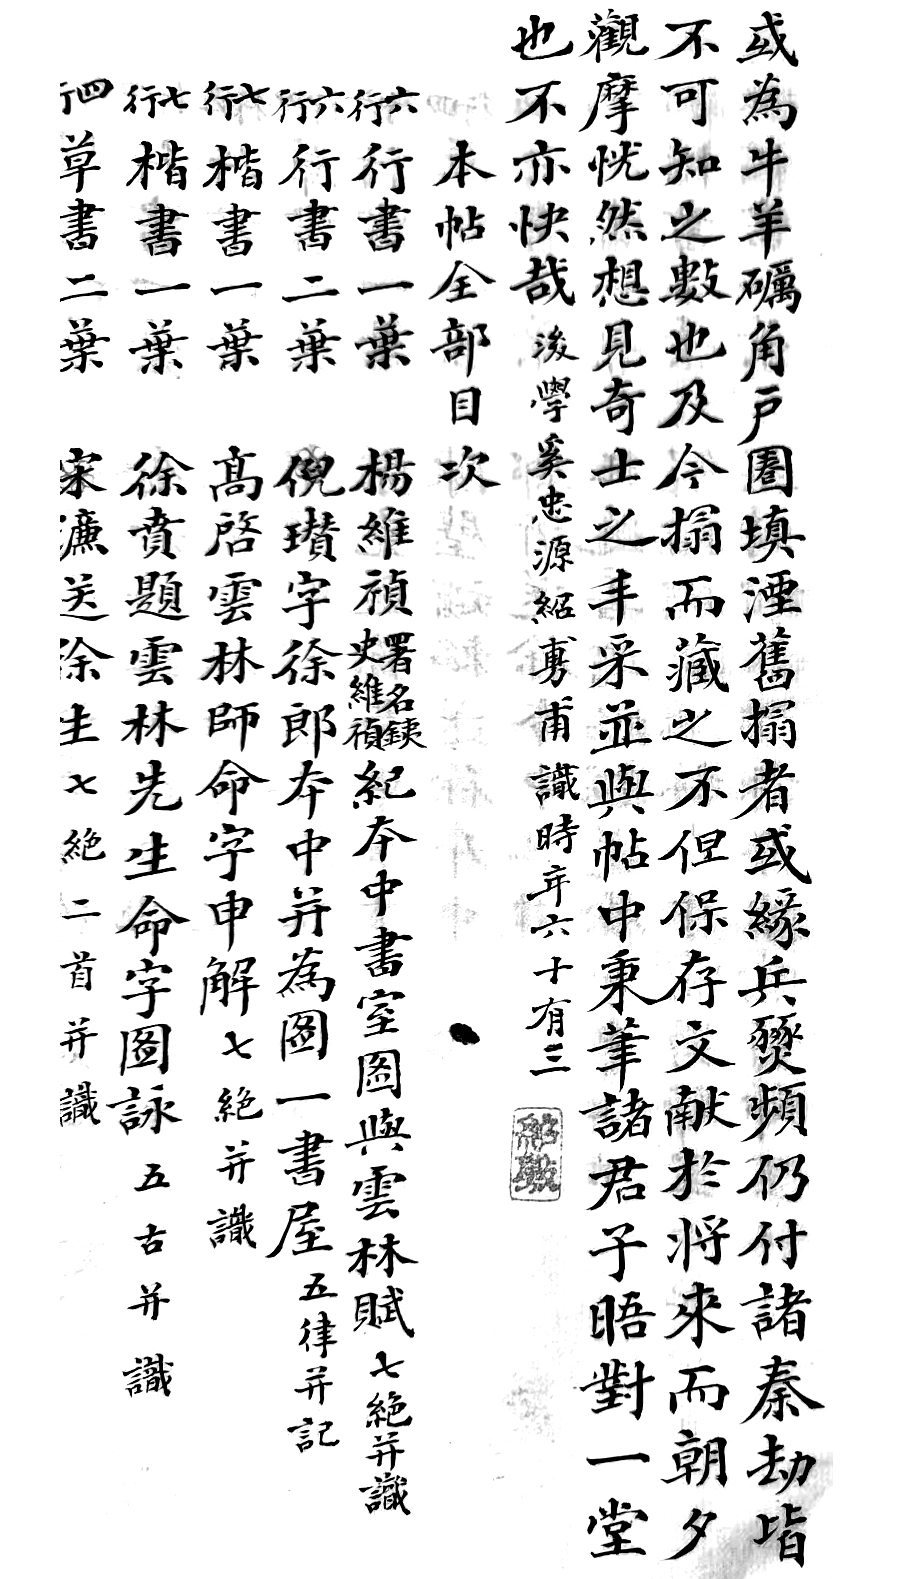 或為牛羊礪角戶圂填湮舊搨者或緣兵燹頻仍付諸秦劫皆
不可知之數也及今搨而藏之不但保存文献於將來而朝夕
觀摩恍然想見奇士之丰采並與帖中秉筆諸君子晤對一堂
也不亦快哉 後學奚忠源紹勇甫識時年六十有三
本帖全部目次
六行 行書一葉 楊維禎 署名鉄史維禎 紀夲中書室図與雲林賦 七絶并識
六行 行書二葉 倪瓚字徐郎夲中并為圖一書屋 五律并記
七行 楷書一葉 高啓雲林師命字申解 七絶并識
七行 楷書一葉 徐賁題雲林先生命字圖詠 五古并識
四行 草書二葉 宋濂送徐生 七絶二首并識